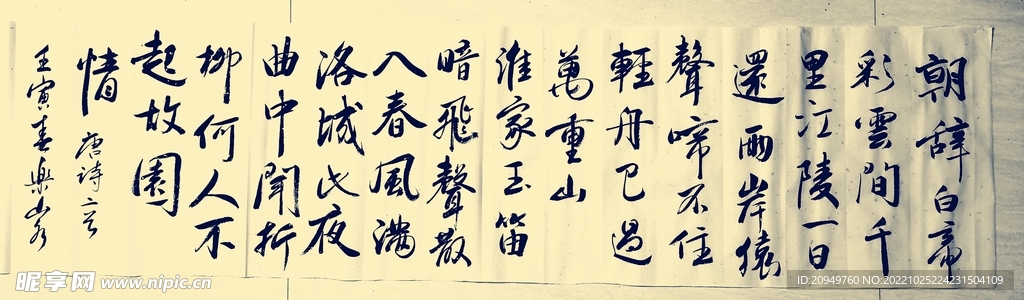 朝辞白帝
彩雲間千
里江陵一日
還兩岸猿
聲啼不住
輕舟已過
萬重山
誰家玉笛
暗飛聲散
入春風滿
洛城此夜
曲中聞折
柳何人不
起故園
情
唐詩二首
壬寅春樂山
昵享网 www.nipic.cn
ID:20949760 NO:20221025224231504109